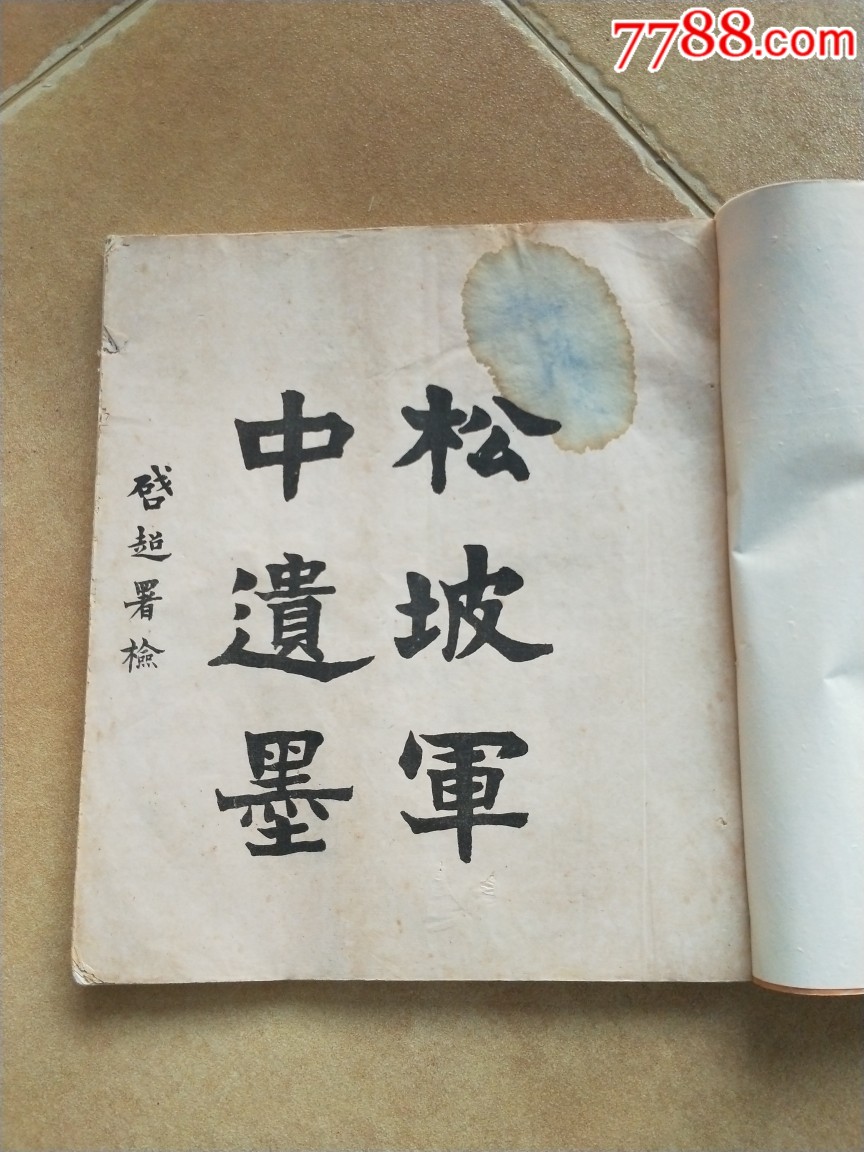 7788.com
松坡軍
中遺墨
啓超署檢